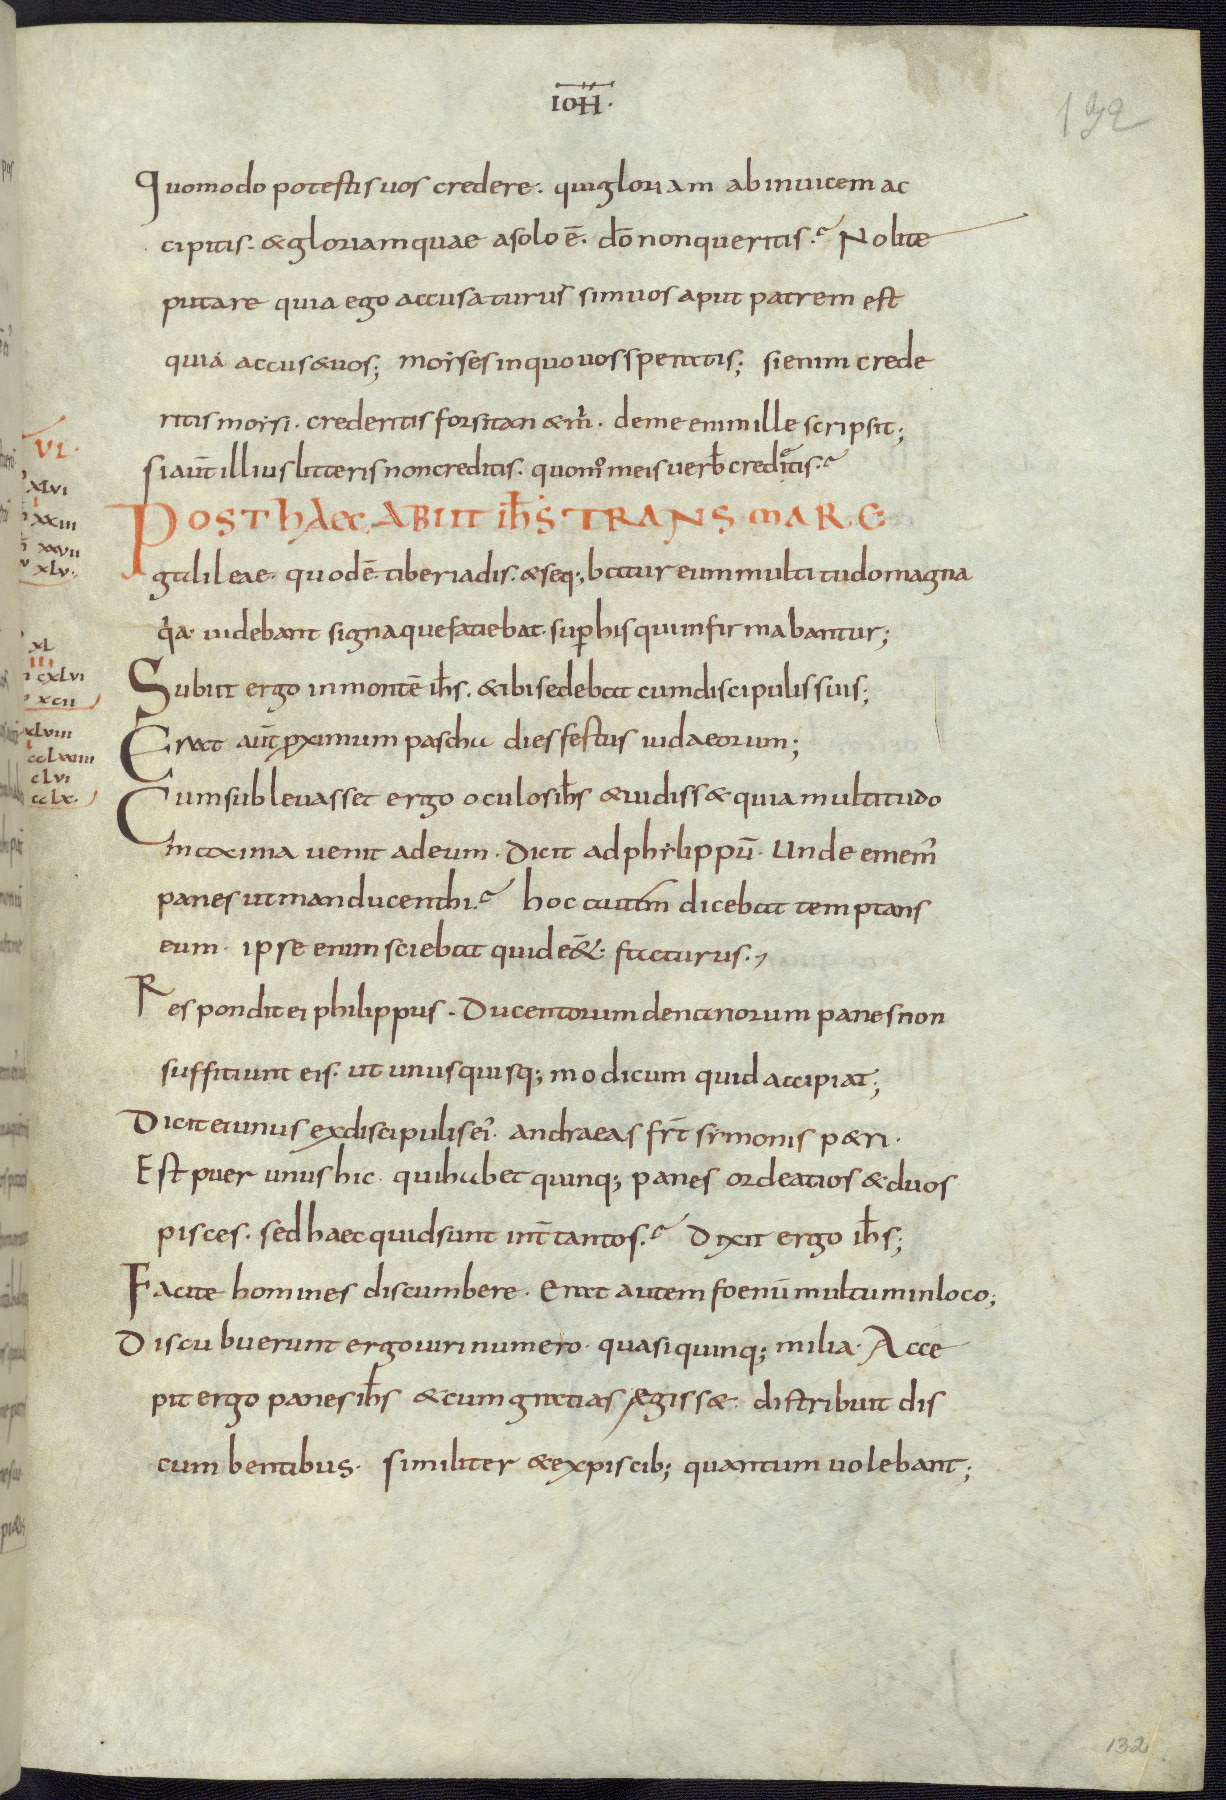 IOH·
132
Quomodo potestis uos credere· qui gloriam ab inuicem ac
cipitis· & gloriam quae a solo ē· dō non queritis· Nolite
putare quia ego accusaturus sim uos aput patrem est
quia accus& uos; moyses in quo uos speratis; si enim crede
ritis moysi· crederitis forsitan & m· de me enim ille scripsit;
si aut̄ illius litteris non creditis· quom̊ meis uerb̄ creditis·
VI·
XLVI
XXIII
XXVII
XLV·
POST HAEC ABIIT IH̄S TRANS MARE
galileae· quod ē tiberiadis· & seq;batur eum multitudo magna
q̇a uidebant signa que fatiebat· sup̄ his qui infirmabantur;
XL
III
CXLVI
XCII
Subiit ergo in montē ih̄s· & ibi sedebat cum discipulis suis;
XLVIII
Erat aut̄ proximum pascha dies festus iudaeorum;
CCLXXIIII
CLVI
CCLX·
Cum subleuasset ergo oculos ih̄s & uidiss& quia multitudo
maxima uenit ad eum· Dicit ad phylippū· Unde emem̄
panes ut manducent hi· hoc autem dicebat temptans
eum· ipse enim sciebat quid e&· facturus·
Respondit ei philippus· Ducentorum denariorum panes non
suffitiunt eis· ut unusquisq; modicum quid accipiat;
Dicit ei unus ex discipulis ei· andraeas fr̄t symonis p&ri·
Est puer unus hic· qui habet quinq; panes ordeatios & duos
pisces· sed haec quid sunt int̄ tantos· Dixit ergo ih̄s;
Facite homines discumbere· Erat autem foenū multum in loco;
Discubuerunt ergo uiri numero· quasi quinq; milia· Acce
pit ergo panes ih̄s & cum gratias ęgiss& distribuit dis
cumbentibus· similiter & ex piscib; quantum uolebant;
132